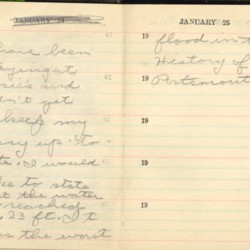 JANUARY 24
have been
aying at
osies and
dn't get
keep my
ary up-to-
te. I would
ke to state
at the water
reached
.23 ft. It
s the worst
JANUARY 25
19 flood in t
History of
Portsmout
19
19
19
19